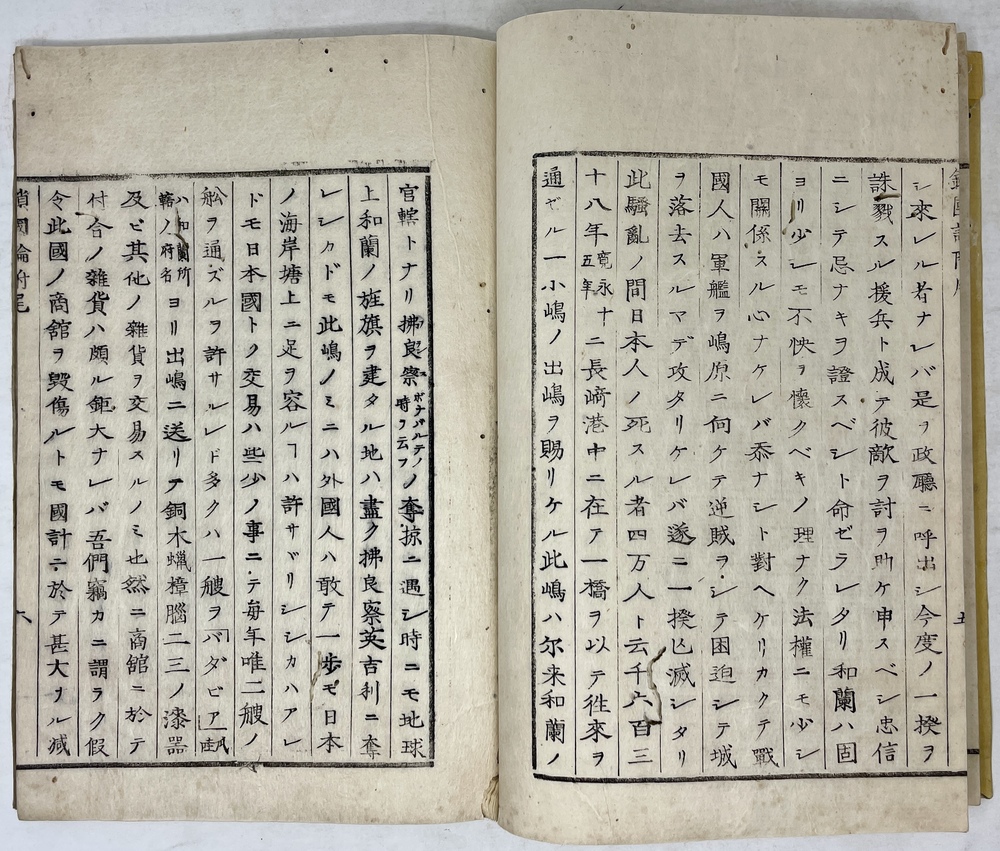 シ來レル者ナレバ是ヲ政廳ニ呼出シ今度ノ一揆ヲ
誅戮スル援兵ト成テ彼敵ヲ討ヲ助ケ申スベシ忠信
ニシテ忌ナキヲ證スベシト命ゼラレタリ和蘭ハ固
ヨリ少シモ不快ヲ懷クベキノ理ナク法權ニモ少シ
モ關係スル心ナケレバ忝ナシト對ヘケリカクテ戰
國人ハ軍艦ヲ嶋原ニ向ケテ逆賊ヲシテ困迫シテ城
ヲ落去スルマデ攻タリケレバ遂ニ一揆亾滅シタリ
此騷亂ノ間日本人ノ死スル者四万人ト云千六百三
十八年寛永十五年ニ長﨑港中ニ在テ一橋ヲ以テ徃來ヲ
通ゼル一小嶋ノ出嶋ヲ賜リケル此嶋ハ尓来和蘭ノ
官轄トナリ拂良察ボナパルテノ時ヲ云フノ奪掠ニ遇シ時ニモ地球
上和蘭ノ旌旗ヲ建タル地ハ盡ク拂良察英吉利ニ奪
レシカドモ此嶋ノミニハ外國人ハ敢テ一歩モ日本
ノ海岸塘上ニ足ヲ容ルヿハ許サヾリシシカハアレ
ドモ日本國トノ交易ハ些少ノ事ニテ毎年唯二艘ノ
舩ヲ通ズルヲ許サルレド多クハ一艘ヲバダビア
ハ和蘭所轄ノ府名ヨリ出嶋ニ送リテ銅木蠟樟腦二三ノ漆器
及ビ其他ノ雜貨ヲ交易スルノミ也然ニ商舘ニ於テ
付合ノ雜貨ハ頗ル鉅大ナレバ吾們竊カニ謂ラク假
令此國ノ商舘ヲ毀傷ルトモ國計ニ於テ甚大ナル減
鎖國論附尾
六